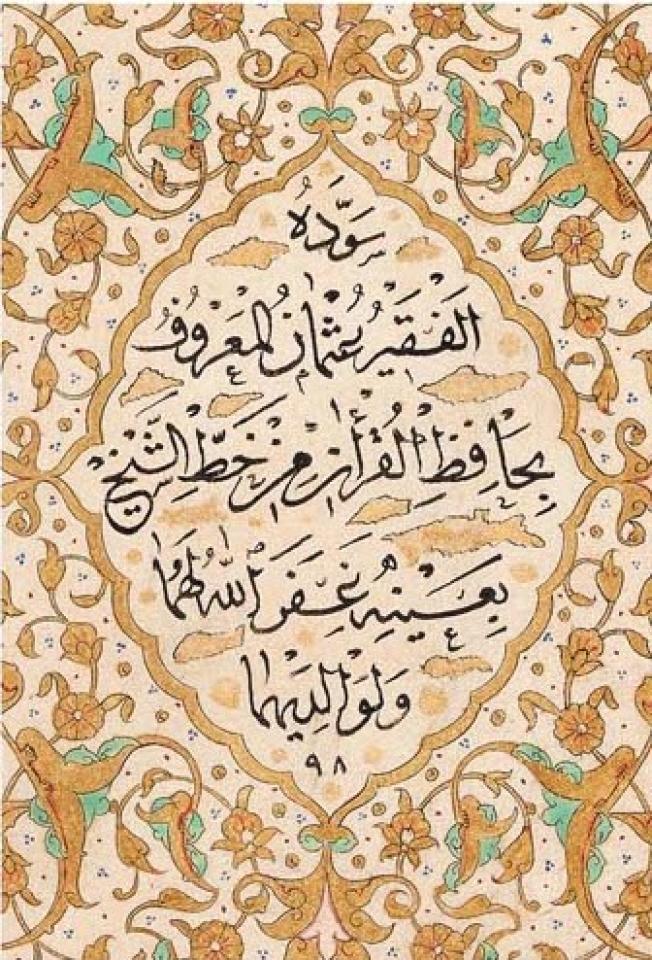 سَوَّدَهُ
الفَقِيرُ عُثْمَانُ المَعْرُوفُ
بِحَافِظِ القُرْآنِ مِنْ خَطِّ الشَّيْخِ
بِعَيْنِهِ غَفَرَ اللّٰهُ لَهُمَا
وَلِوَالِدَيْهِمَا
٩٨